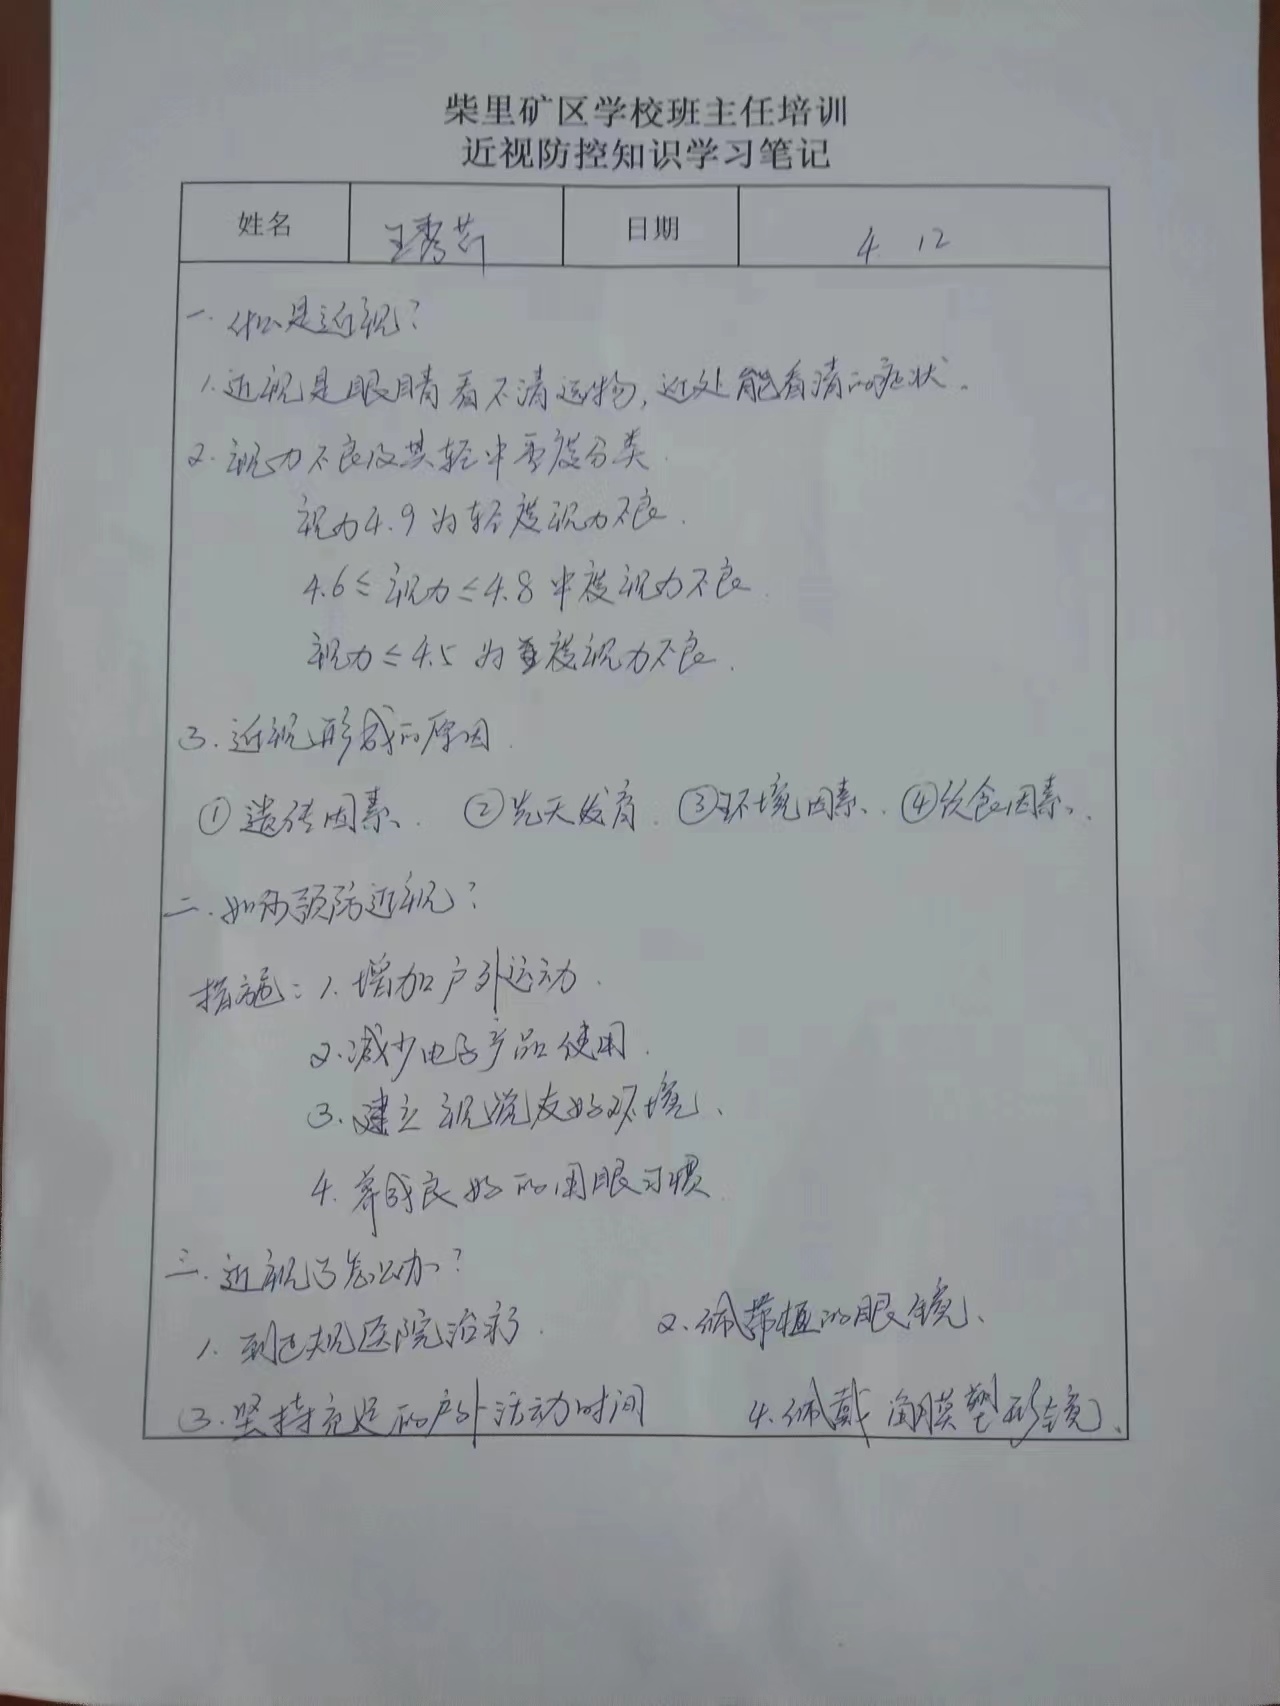 柴里矿区学校班主任培训
近视防控知识学习笔记
姓名 王秀芹 日期 4 12
一. 什么是近视?
1.近视是眼睛看不清远物,近处能看清的症状.
2.视力不良及其轻中重度分类.
视力4.9为轻度视力不良.
4.6≤视力≤4.8中度视力不良.
视力≤4.5为重度视力不良.
3.近视形成的原因.
①遗传因素、 ②先天发育. ③环境因素、 ④饮食因素、
二.如何预防近视?
措施:1.增加户外运动.
2.减少电子产品使用.
3.建立视觉友好环境、
4.养成良好的用眼习惯.
三.近视了怎么办?
1.到正规医院治疗. 2.佩带 的眼镜、
3.坚持充足的户外活动时间 4.佩戴角膜塑形镜、